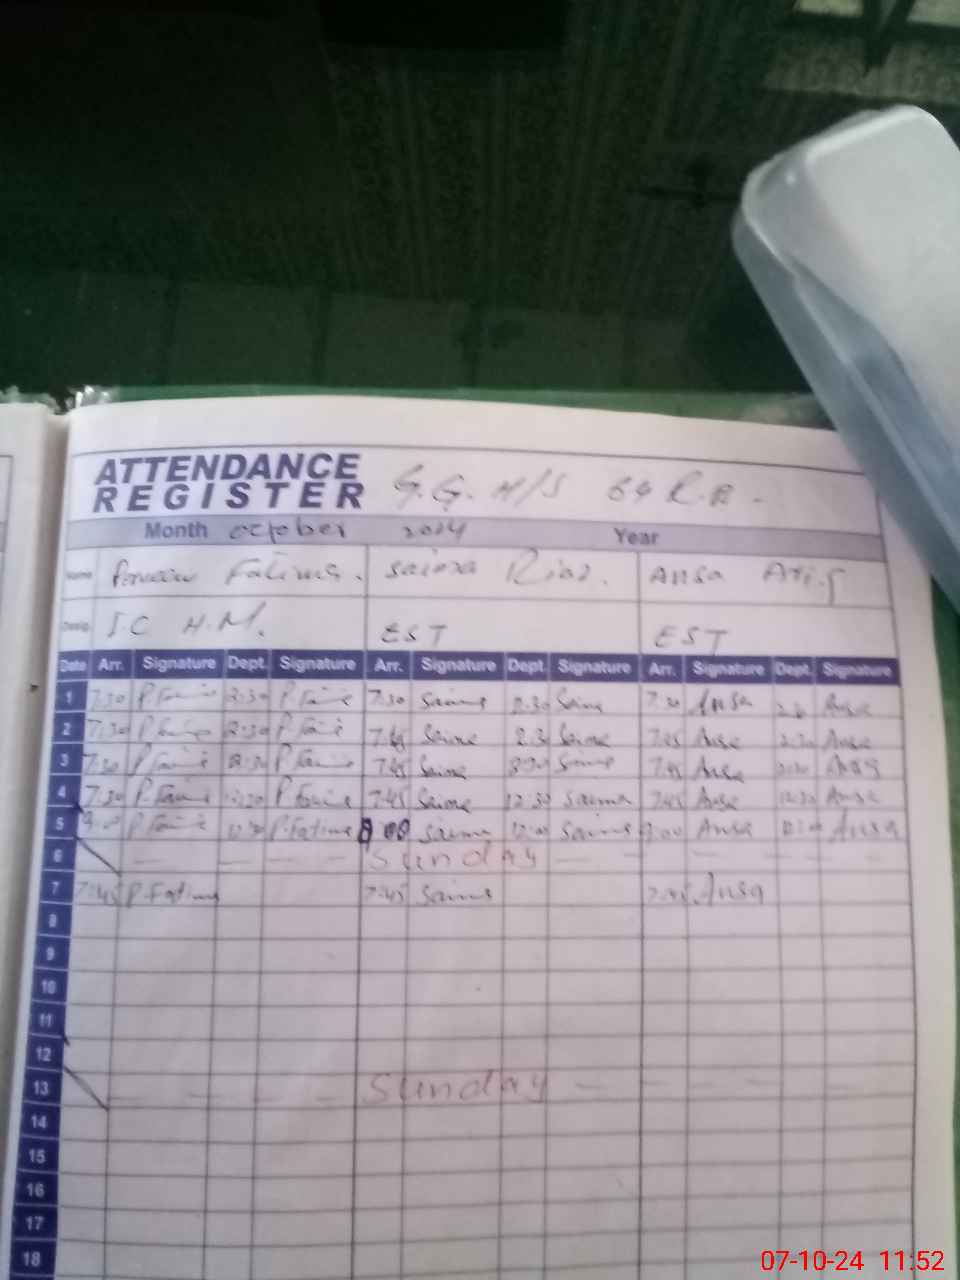 ATTENDANCE
REGISTER G.G. H/S 64 R.B.
Month October 2024 Year
Name Parveen Fatima. Saima Riaz. Ansa
Desig. I.C H.M. EST EST
Date Arr. Signature Dept. Signature Arr. Signature Dept. Signature Arr. Signature Dept. Signature
1 7:30 P.Fatima 12:30 P.Fatima 7:30 Saima 12:30 Saima 7:30 Ansa Ansa
2 7:30 12:30 P.Fatima 7:45 Saima Saima 7:45 Ansa 12:30 Ansa
3 7:30 P.Fatima 12:30 P.Fatima 7:45 Saima Saima 7:45 Ansa Ansa
4 7:30 P.Fatima 12:30 P.Fatima 7:45 Saima 12:30 Saima 7:45 Ansa 12:30 Ansa
5 P.Fatima P.Fatima Saima 12:00 Saima 9:00 Ansa 12:00 Ansa
6 Sunday
7 7:45 P.Fatima 7:45 Saima 7:45 Ansa
8
9
10
11
12
13 Sunday
14
15
16
17
18
07-10-24 11:52